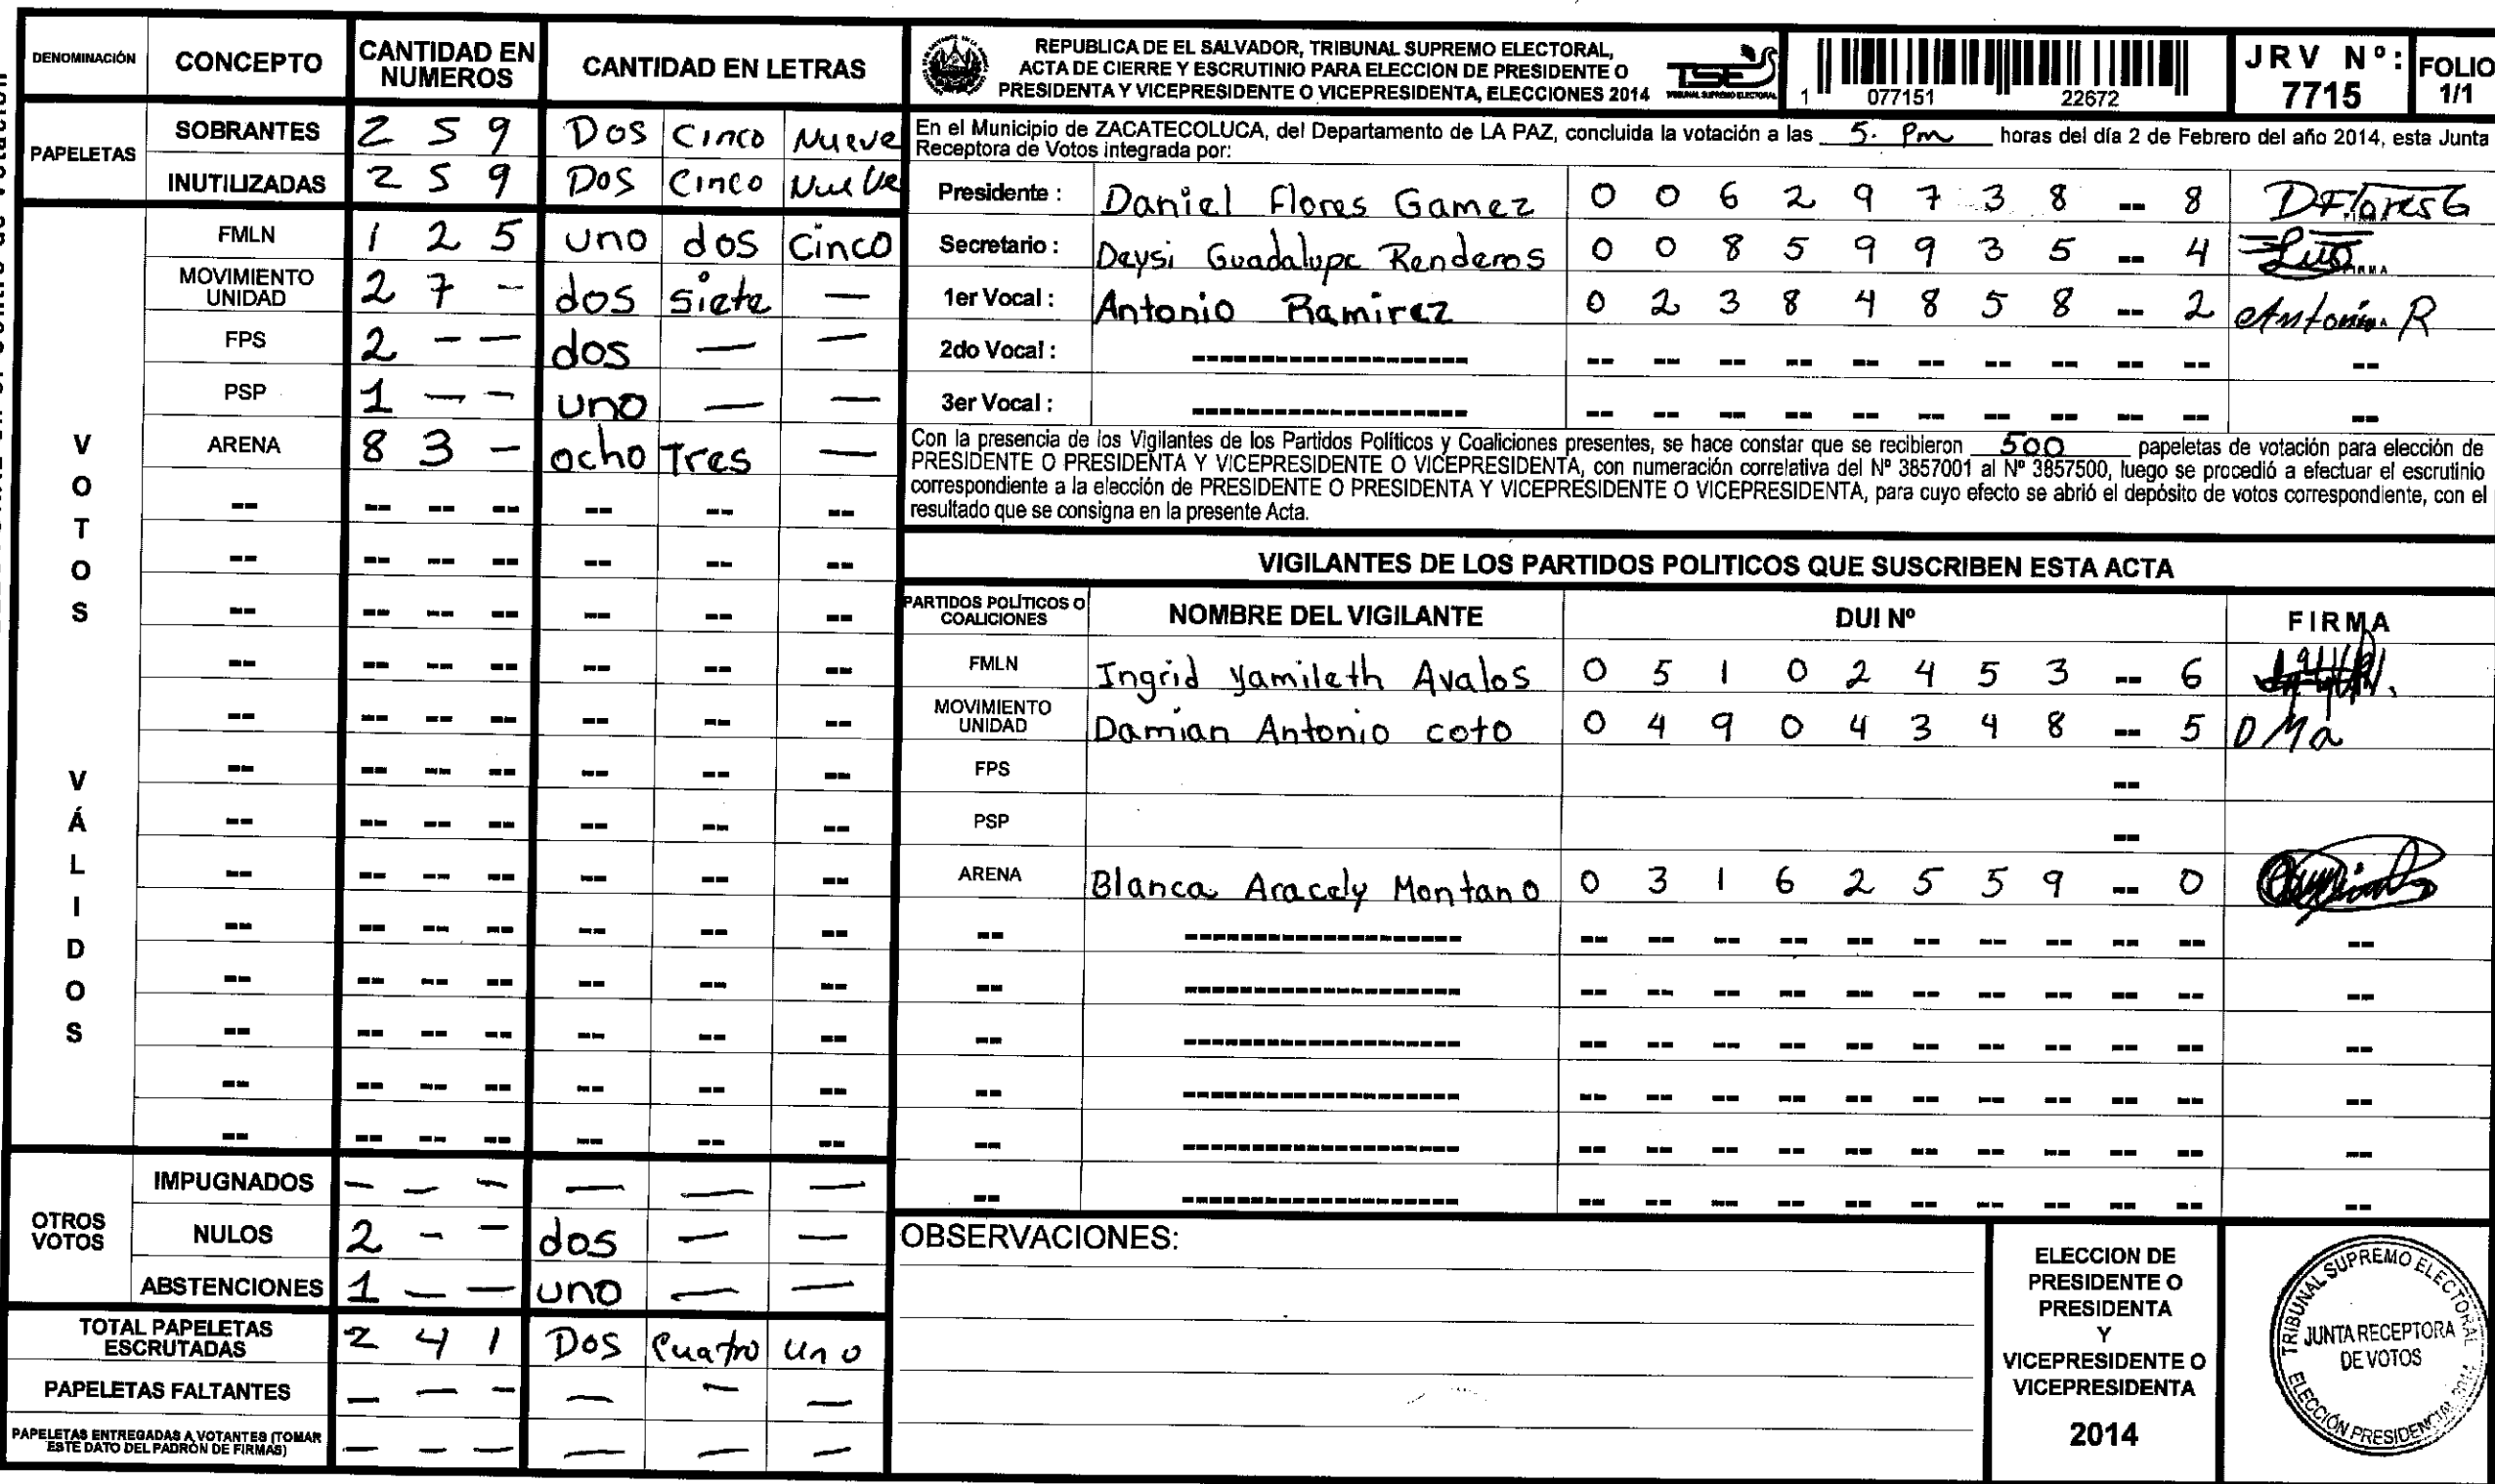 DENOMINACIÓN CONCEPTO CANTIDAD EN NUMEROS CANTIDAD EN LETRAS
PAPELETAS
SOBRANTES 2 5 9 Dos Cinco Nueve
INUTILIZADAS 2 5 9 Dos Cinco Nueve
VOTOS VÁLIDOS
FMLN 1 2 5 uno dos cinco
MOVIMIENTO UNIDAD 2 7 - dos siete —
FPS 2 - - dos — —
PSP 1 - - uno — —
ARENA 8 3 - ocho Tres —
-- -- -- -- -- -- --
-- -- -- -- -- -- --
-- -- -- -- -- -- --
-- -- -- -- -- -- --
-- -- -- -- -- -- --
-- -- -- -- -- -- --
-- -- -- -- -- -- --
-- -- -- -- -- -- --
-- -- -- -- -- -- --
-- -- -- -- -- -- --
-- -- -- -- -- -- --
-- -- -- -- -- -- --
-- -- -- -- -- -- --
OTROS VOTOS
IMPUGNADOS - - - — — —
NULOS 2 - - dos — —
ABSTENCIONES 1 - - uno — —
TOTAL PAPELETAS ESCRUTADAS 2 4 1 Dos Cuatro uno
PAPELETAS FALTANTES - - - — — —
PAPELETAS ENTREGADAS A VOTANTES (TOMAR ESTE DATO DEL PADRÓN DE FIRMAS) - - - — — —
REPUBLICA DE EL SALVADOR, TRIBUNAL SUPREMO ELECTORAL,
ACTA DE CIERRE Y ESCRUTINIO PARA ELECCION DE PRESIDENTE O
PRESIDENTA Y VICEPRESIDENTE O VICEPRESIDENTA, ELECCIONES 2014
TSE
TRIBUNAL SUPREMO ELECTORAL
1 077151 22672
JRV Nº: 7715
FOLIO 1/1
En el Municipio de ZACATECOLUCA, del Departamento de LA PAZ, concluida la votación a las 5. Pm horas del día 2 de Febrero del año 2014, esta Junta
Receptora de Votos integrada por:
Presidente : Daniel Flores Gamez 0 0 6 2 9 7 3 8 -- 8 DFloresG
Secretario : Deysi Guadalupe Renderos 0 0 8 5 9 9 3 5 -- 4
1er Vocal : Antonio Ramirez 0 2 3 8 4 8 5 8 -- 2 Antonio R
2do Vocal : -------------------- -- -- -- -- -- -- -- -- -- -- --
3er Vocal : -------------------- -- -- -- -- -- -- -- -- -- -- --
Con la presencia de los Vigilantes de los Partidos Políticos y Coaliciones presentes, se hace constar que se recibieron 500 papeletas de votación para elección de
PRESIDENTE O PRESIDENTA Y VICEPRESIDENTE O VICEPRESIDENTA, con numeración correlativa del Nº 3857001 al Nº 3857500, luego se procedió a efectuar el escrutinio
correspondiente a la elección de PRESIDENTE O PRESIDENTA Y VICEPRESIDENTE O VICEPRESIDENTA, para cuyo efecto se abrió el depósito de votos correspondiente, con el
resultado que se consigna en la presente Acta.
VIGILANTES DE LOS PARTIDOS POLITICOS QUE SUSCRIBEN ESTA ACTA
PARTIDOS POLÍTICOS O COALICIONES NOMBRE DEL VIGILANTE DUI Nº FIRMA
FMLN Ingrid Yamileth Avalos 0 5 1 0 2 4 5 3 -- 6
MOVIMIENTO UNIDAD Damian Antonio coto 0 4 9 0 4 3 4 8 -- 5 DMa
FPS --
PSP --
ARENA Blanca Aracely Montano 0 3 1 6 2 5 5 9 -- 0
-- -------------------- -- -- -- -- -- -- -- -- -- -- --
-- -------------------- -- -- -- -- -- -- -- -- -- -- --
-- -------------------- -- -- -- -- -- -- -- -- -- -- --
-- -------------------- -- -- -- -- -- -- -- -- -- -- --
-- -------------------- -- -- -- -- -- -- -- -- -- -- --
-- -------------------- -- -- -- -- -- -- -- -- -- -- --
OBSERVACIONES:
ELECCION DE
PRESIDENTE O
PRESIDENTA
Y
VICEPRESIDENTE O
VICEPRESIDENTA
2014
TRIBUNAL SUPREMO ELECTORAL
JUNTA RECEPTORA
DE VOTOS
ELECCIÓN PRESIDENCIAL 2014